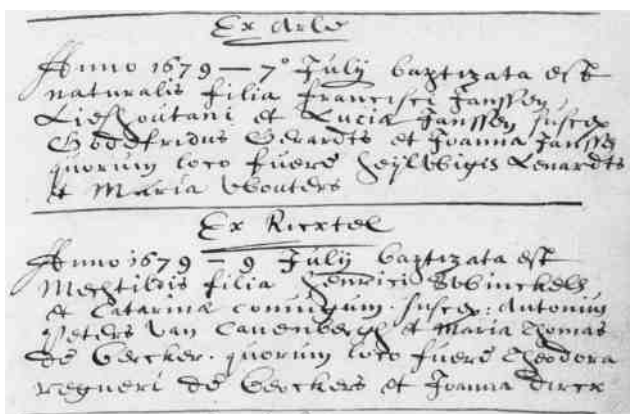 Ex Arle
Anno 1679 — 7° Julij baptizata est
naturalis filia Francisci Janssen
Lieshoutani et Lucia Janssen suscep
Godefridus Gerardts et Joanna Janssen
quorum loco fuere Heijlwigis Lenardts
et Maria Wouters
Ex Ricxtel
Anno 1679 — 9 Julij baptizata est
Mechtildis filia Henrici Swinckels
et Catarina coniugum. suscep: Antonius
Peters van Cauenbergh et Maria Thomas
de Gercker. quorum loco fuere Theodora
regneri de Beockers et Joanna Dircx